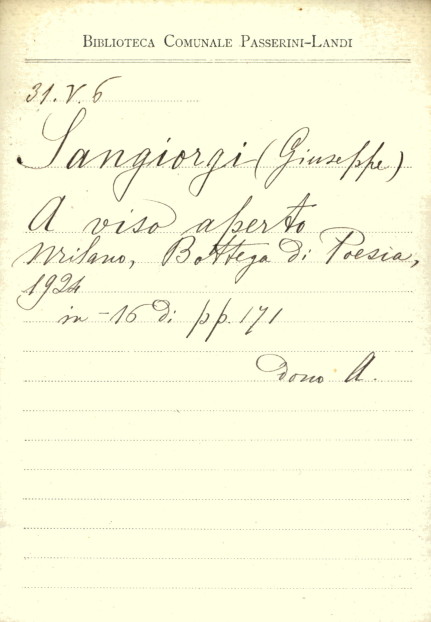 BIBLIOTECA COMUNALE PASSERINI-LANDI
31. V. 6
Sangiorgi (Giuseppe)
A viso aperto
Milano, Bottega di Poesia,
1924
in-16 di pp. 171
Dono A.